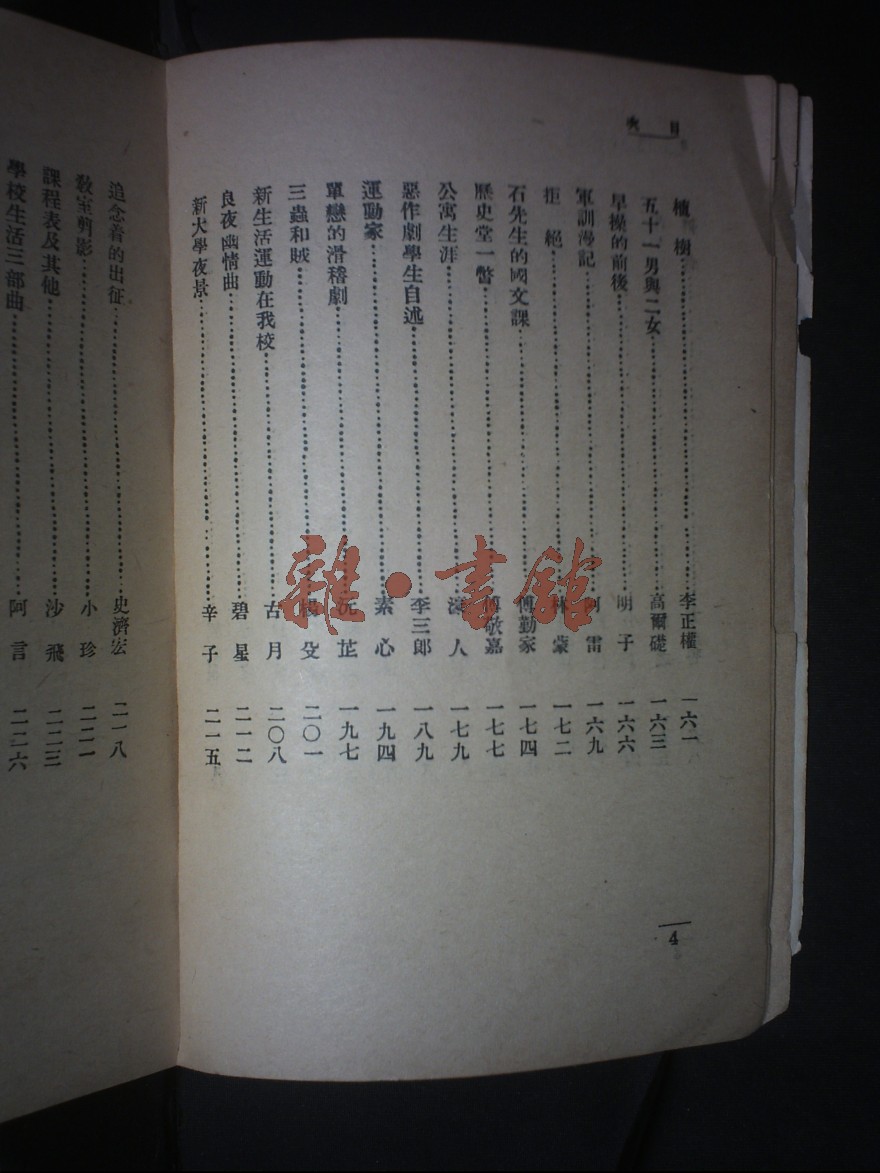 目次
樹……李正權 一六一
五十一男與二女……高爾礎 一六三
早操的前後……明子 一六六
軍訓漫記……阿雷 一六九
拒絕……林蒙 一七二
石先生的國文課……傅勤家 一七四
歷史堂一瞥……傅敬嘉 一七七
公寓生涯……人 一七九
惡作劇學生自述……李三郎 一八九
運動家……素心 一九四
單戀的滑稽劇……沉芷 一九七
三蟲和賊……楊殳 二〇一
新生活運動在我校……古月 二〇八
良夜幽情曲……碧星 二一二
新大學夜景……辛子 二一五
4
追念着的出征……史濟宏 二一八
教室剪影……小珍 二二一
課程表及其他……沙飛 二二三
學校生活三部曲……阿言 二二六
雜·書館